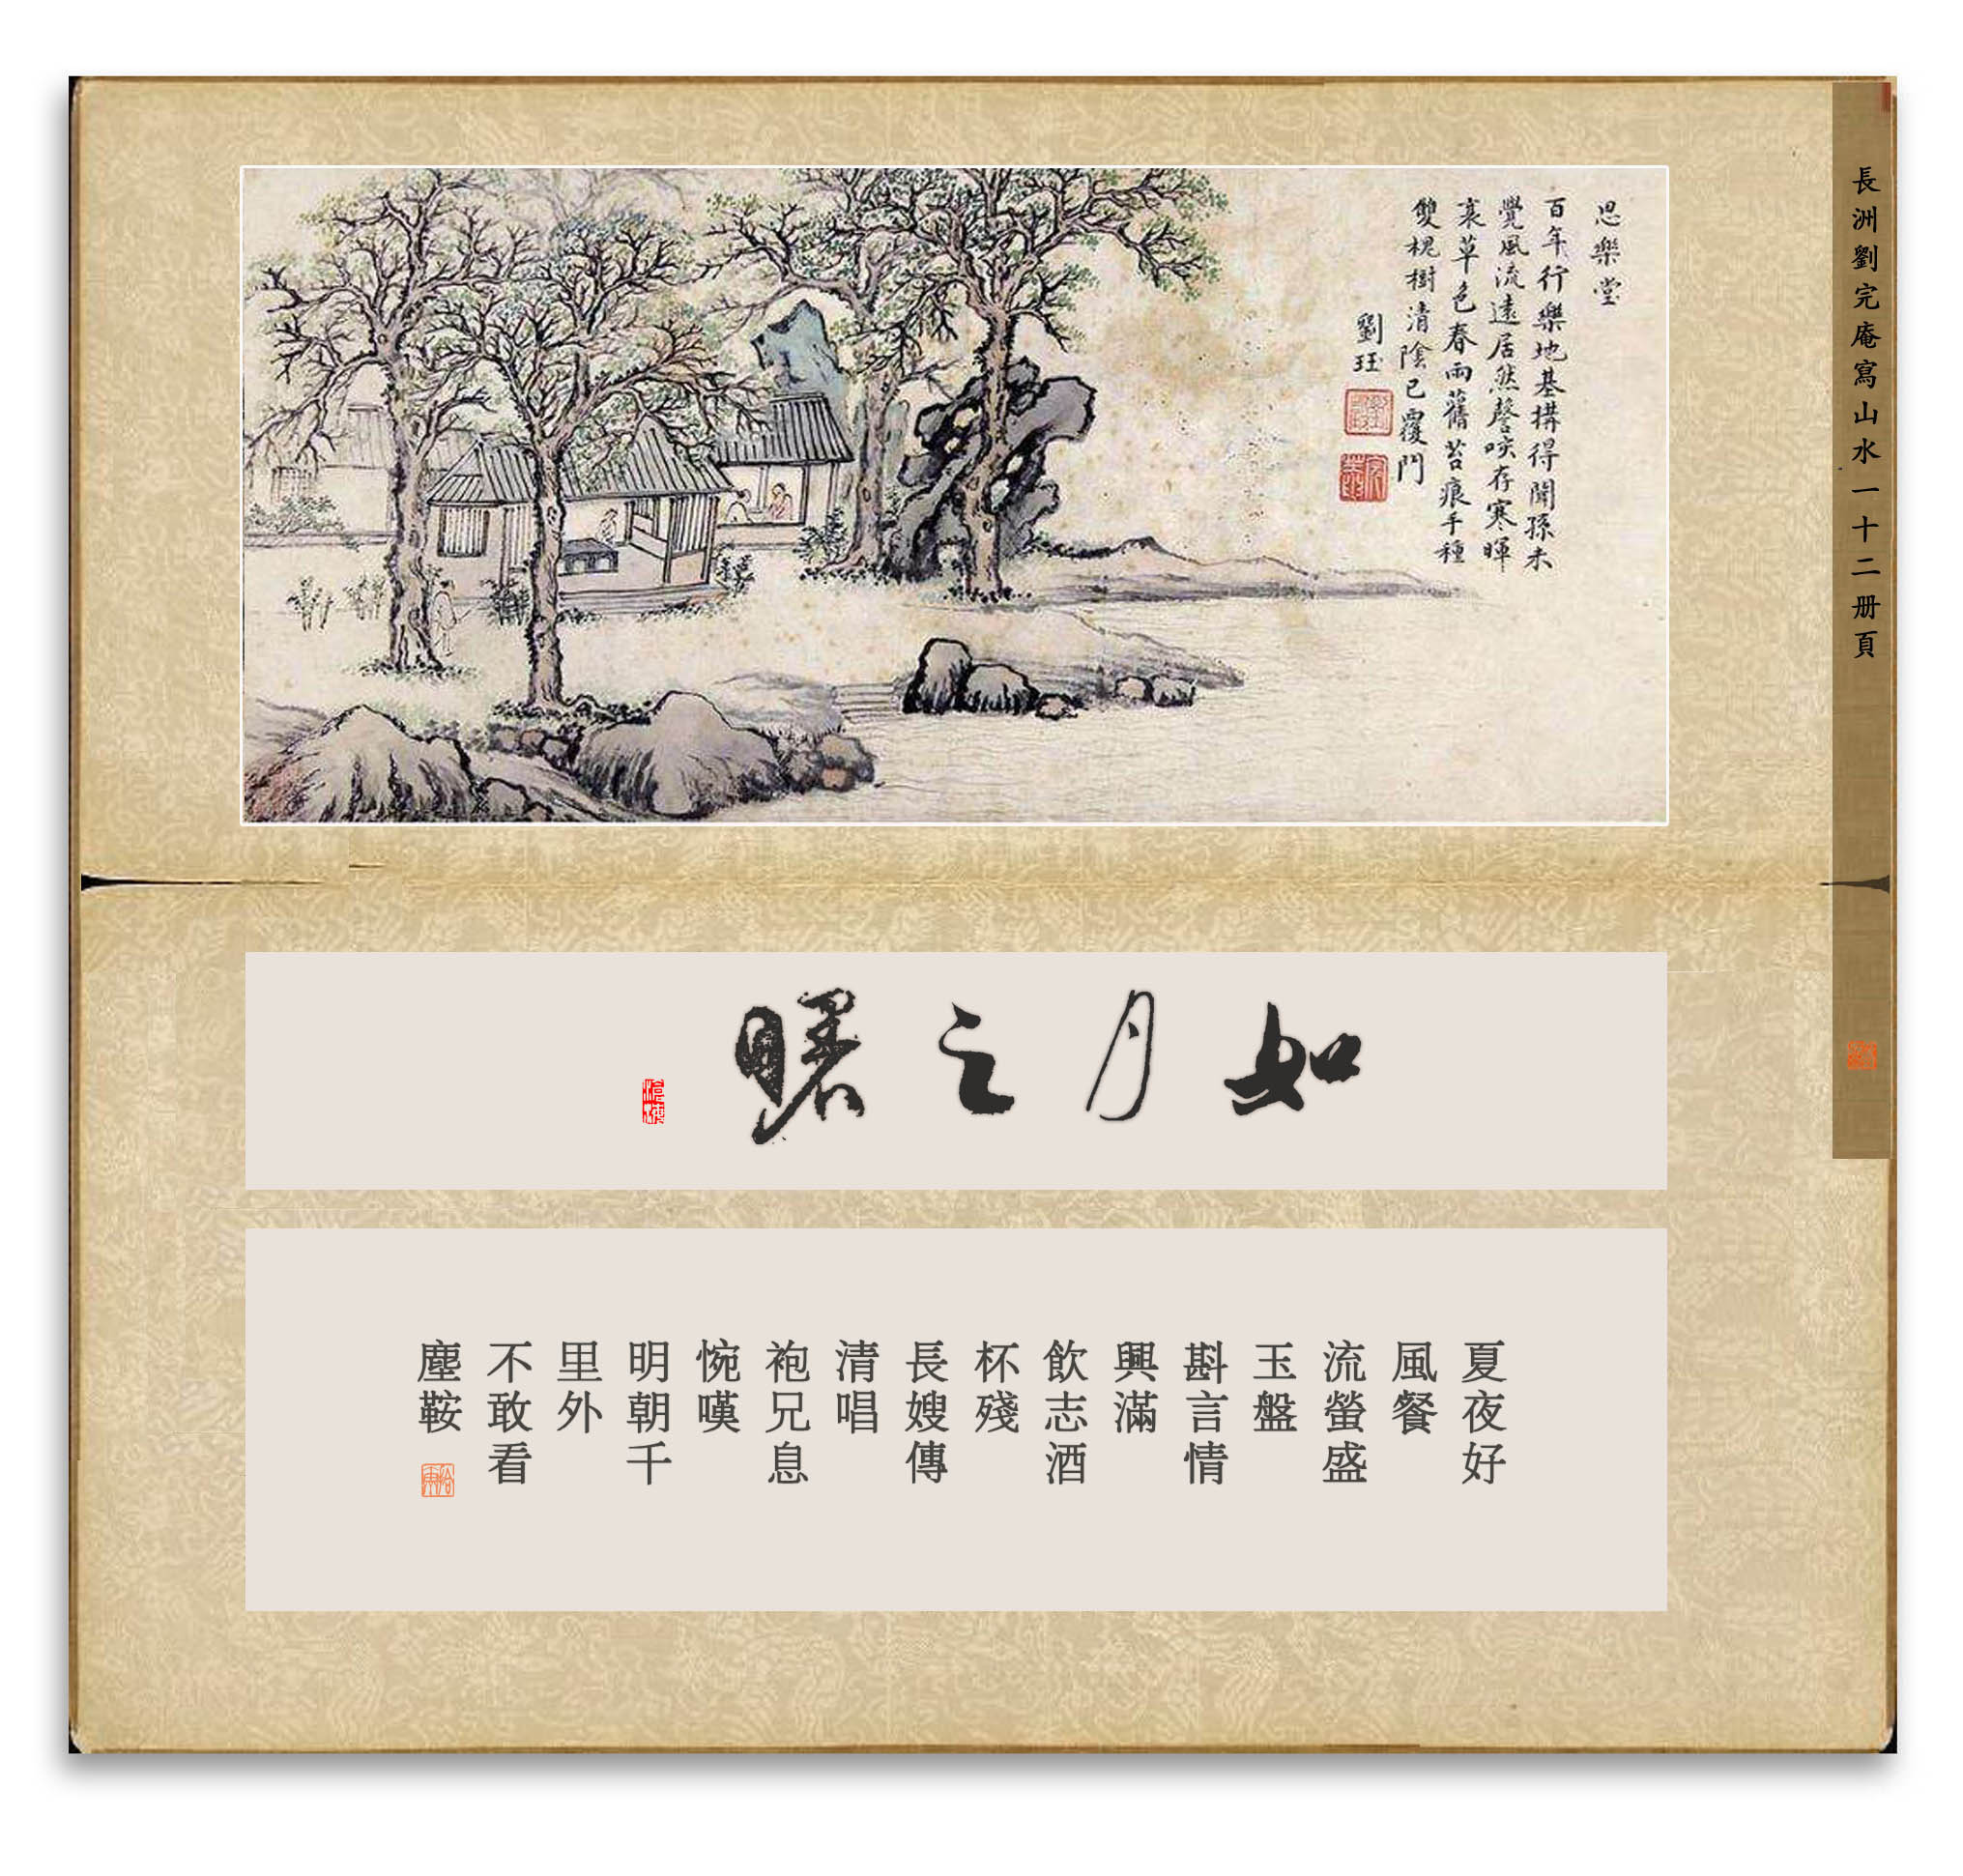 思樂堂
百年行樂地基搆得聞孫未
覺風流遠居然謦咳存寒暉
衰草色春雨舊苔痕手種
雙槐樹清陰已覆門
劉珏
長洲劉完庵寫山水一十二册頁
如月之曙
夏夜好
風餐
流螢盛
玉盤
斟言情
興滿
飲志酒
杯殘
長嫂傳
清唱
袍兄息
惋嘆
明朝千
里外
不敢看
塵鞍